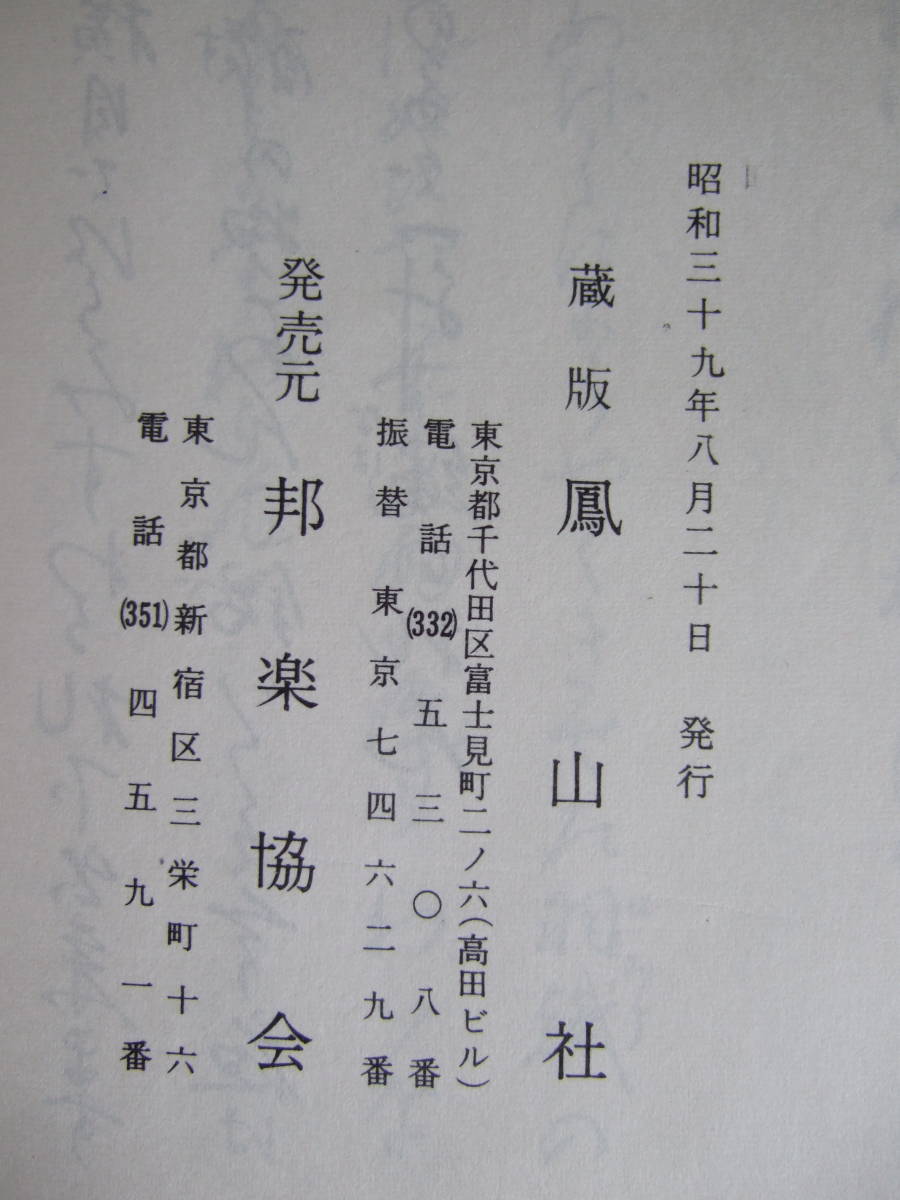 昭和三十九年八月二十日 発行
蔵版 鳳山社
東京都千代田区富士見町二ノ六(高田ビル)
電話(332)五三〇八番
振替東京七四六二九番
発売元 邦楽協会
東京都新宿区三栄町十六
電話(351)四五九一番